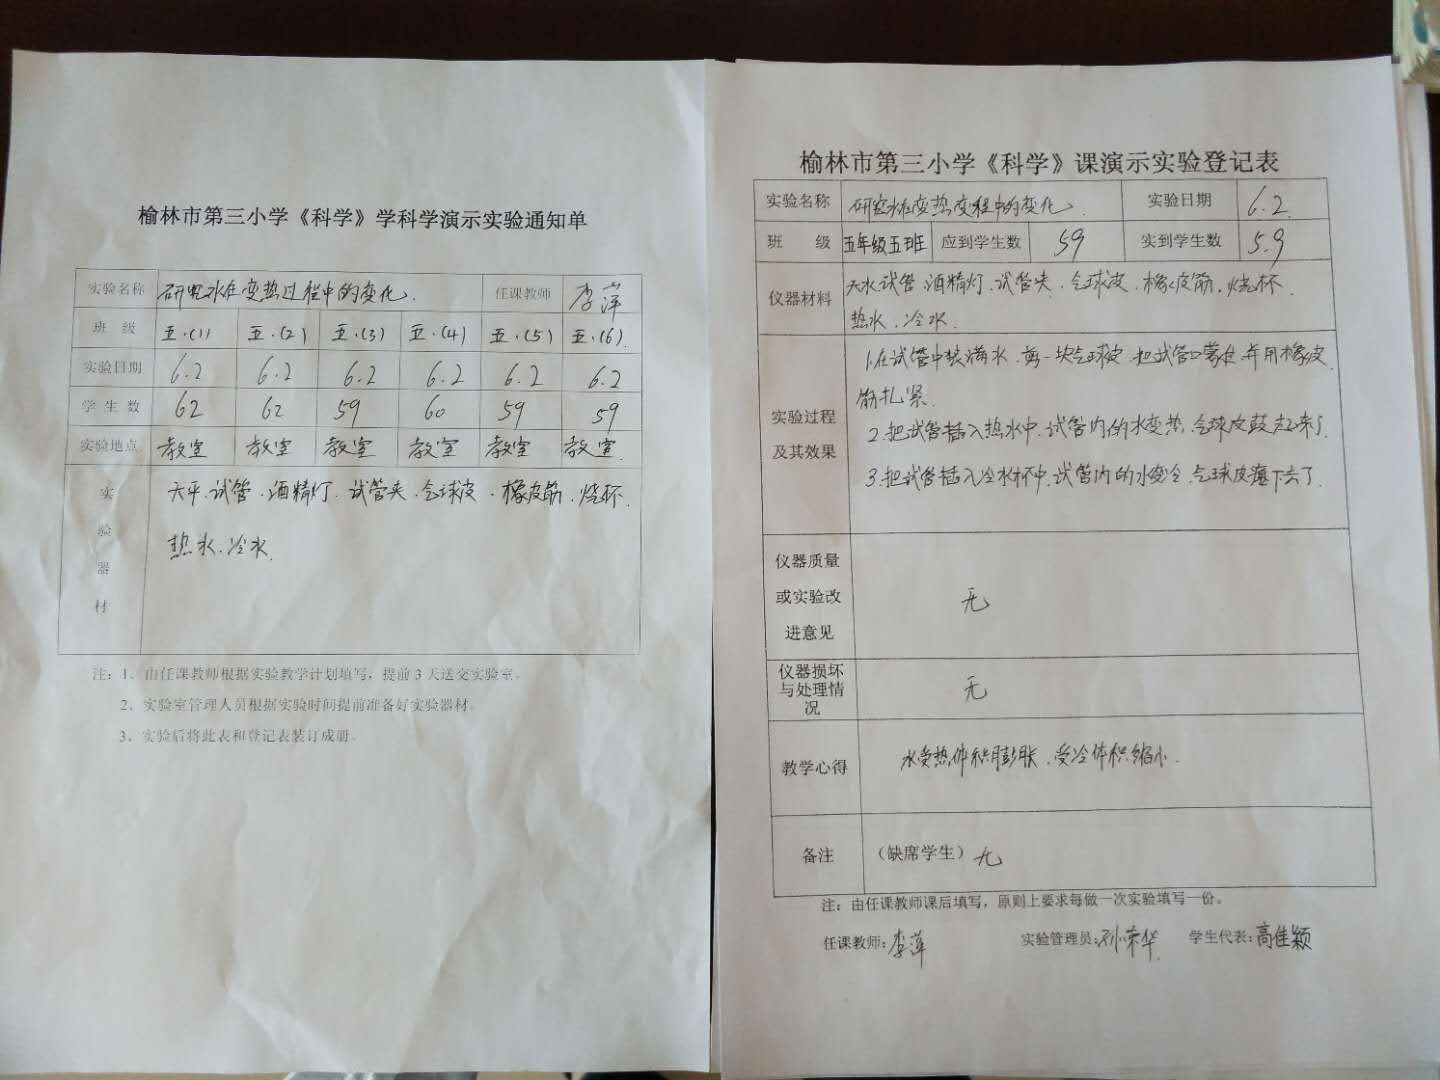 榆林市第三小学《科学》学科学演示实验通知单
实验名称 研究水在变热过程中的变化. 任课教师 李萍
班 级 五.(1) 五.(2) 五.(3) 五.(4) 五.(5) 五.(6)
实验日期 6.2 6.2 6.2 6.2 6.2 6.2
学生数 62 62 59 60 59 59
实验地点 教室 教室 教室 教室 教室 教室
实验器材 试管.酒精灯.试管夹.气球皮.橡皮筋.烧杯.
热水.冷水.
注：1、由任课教师根据实验教学计划填写，提前3天送交实验室。
2、实验室管理人员根据实验时间提前准备好实验器材。
3、实验后将此表和登记表装订成册。
榆林市第三小学《科学》课演示实验登记表
实验名称 研究水在变热变程中的变化. 实验日期 6.2.
班 级 五年级五班 应到学生数 59 实到学生数 5.9
仪器材料 试管.酒精灯.试管夹.气球皮.橡皮筋.烧杯.
热水.冷水.
实验过程及其效果
1.在试管中装满水.剪一块气球皮.把试管口蒙住.并用橡皮
筋扎紧.
2.把试管插入热水中.试管内的水变热,气球皮鼓起来了.
3.把试管插入冷水杯中,试管内的水变冷,气球皮瘪下去了.
仪器质量或实验改进意见 无
仪器损坏与处理情况 无
教学心得 水受热体积膨胀.受冷体积缩小.
备注 （缺席学生）无
注：由任课教师课后填写，原则上要求每做一次实验填写一份。
任课教师：李萍 实验管理员：孙荣华 学生代表：高佳颖